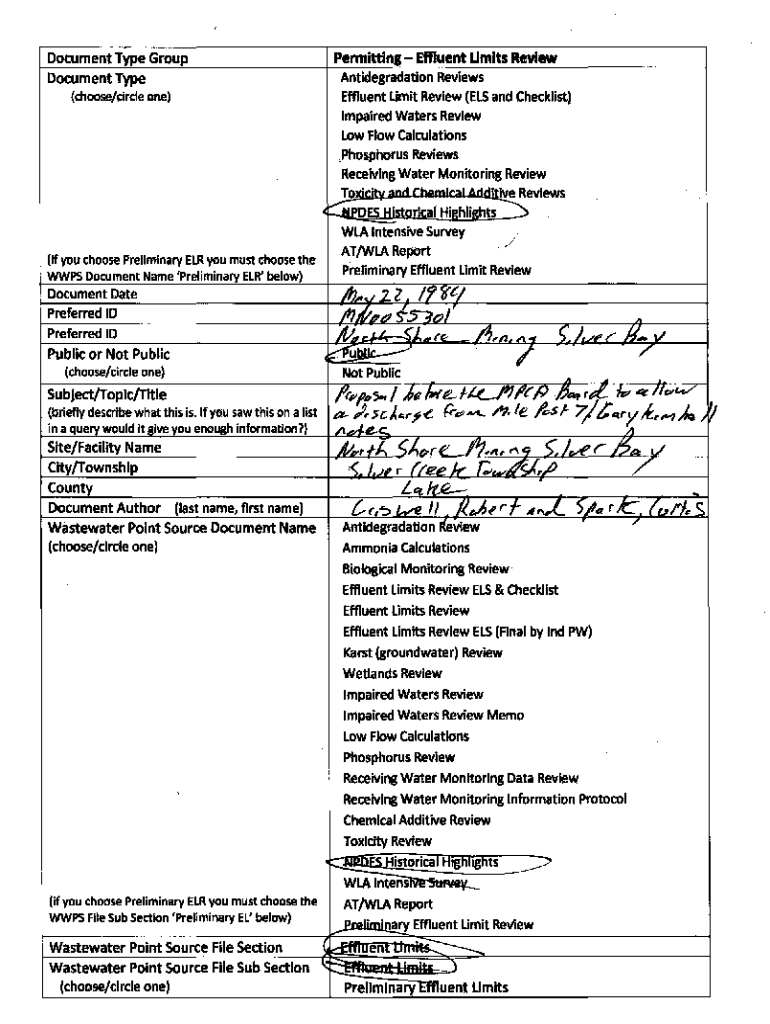 Document Type Group Permitting – Effluent Limits Review
Document Type Antidegradation Reviews
(choose/circle one) Effluent Limit Review (ELS and Checklist)
Impaired Waters Review
Low Flow Calculations
Phosphorus Reviews
Receiving Water Monitoring Review
Toxicity and Chemical Additive Reviews
NPDES Historical Highlights
WLA Intensive Survey
(If you choose Preliminary ELR you must choose the AT/WLA Report
WWPS Document Name 'Preliminary ELR' below) Preliminary Effluent Limit Review
Document Date May 22, 1984
Preferred ID MN0055301
Preferred ID North Shore Mining Silver Bay
Public or Not Public Public
(choose/circle one) Not Public
Subject/Topic/Title Proposal before the MPCA Board to allow
(briefly describe what this is. If you saw this on a list a discharge from Mile Post 7/
in a query would it give you enough information?) notes
Site/Facility Name North Shore Mining Silver Bay
City/Township Silver Creek Township
County Lake
Document Author (last name, first name) Criswell, Robert and Spark,
Wastewater Point Source Document Name Antidegradation Review
(choose/circle one) Ammonia Calculations
Biological Monitoring Review
Effluent Limits Review ELS & Checklist
Effluent Limits Review
Effluent Limits Review ELS (Final by Ind PW)
Karst (groundwater) Review
Wetlands Review
Impaired Waters Review
Impaired Waters Review Memo
Low Flow Calculations
Phosphorus Review
Receiving Water Monitoring Data Review
Receiving Water Monitoring Information Protocol
Chemical Additive Review
Toxicity Review
NPDES Historical Highlights
WLA Intensive Survey
(if you choose Preliminary ELR you must choose the AT/WLA Report
WWPS File Sub Section 'Preliminary EL' below) Preliminary Effluent Limit Review
Wastewater Point Source File Section Effluent Limits
Wastewater Point Source File Sub Section Effluent Limits
(choose/circle one) Preliminary Effluent Limits